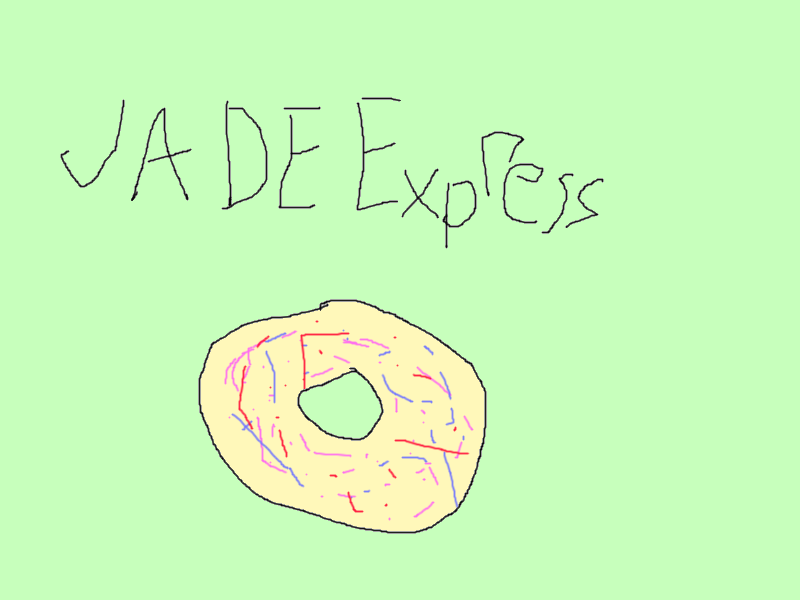 JADE Express